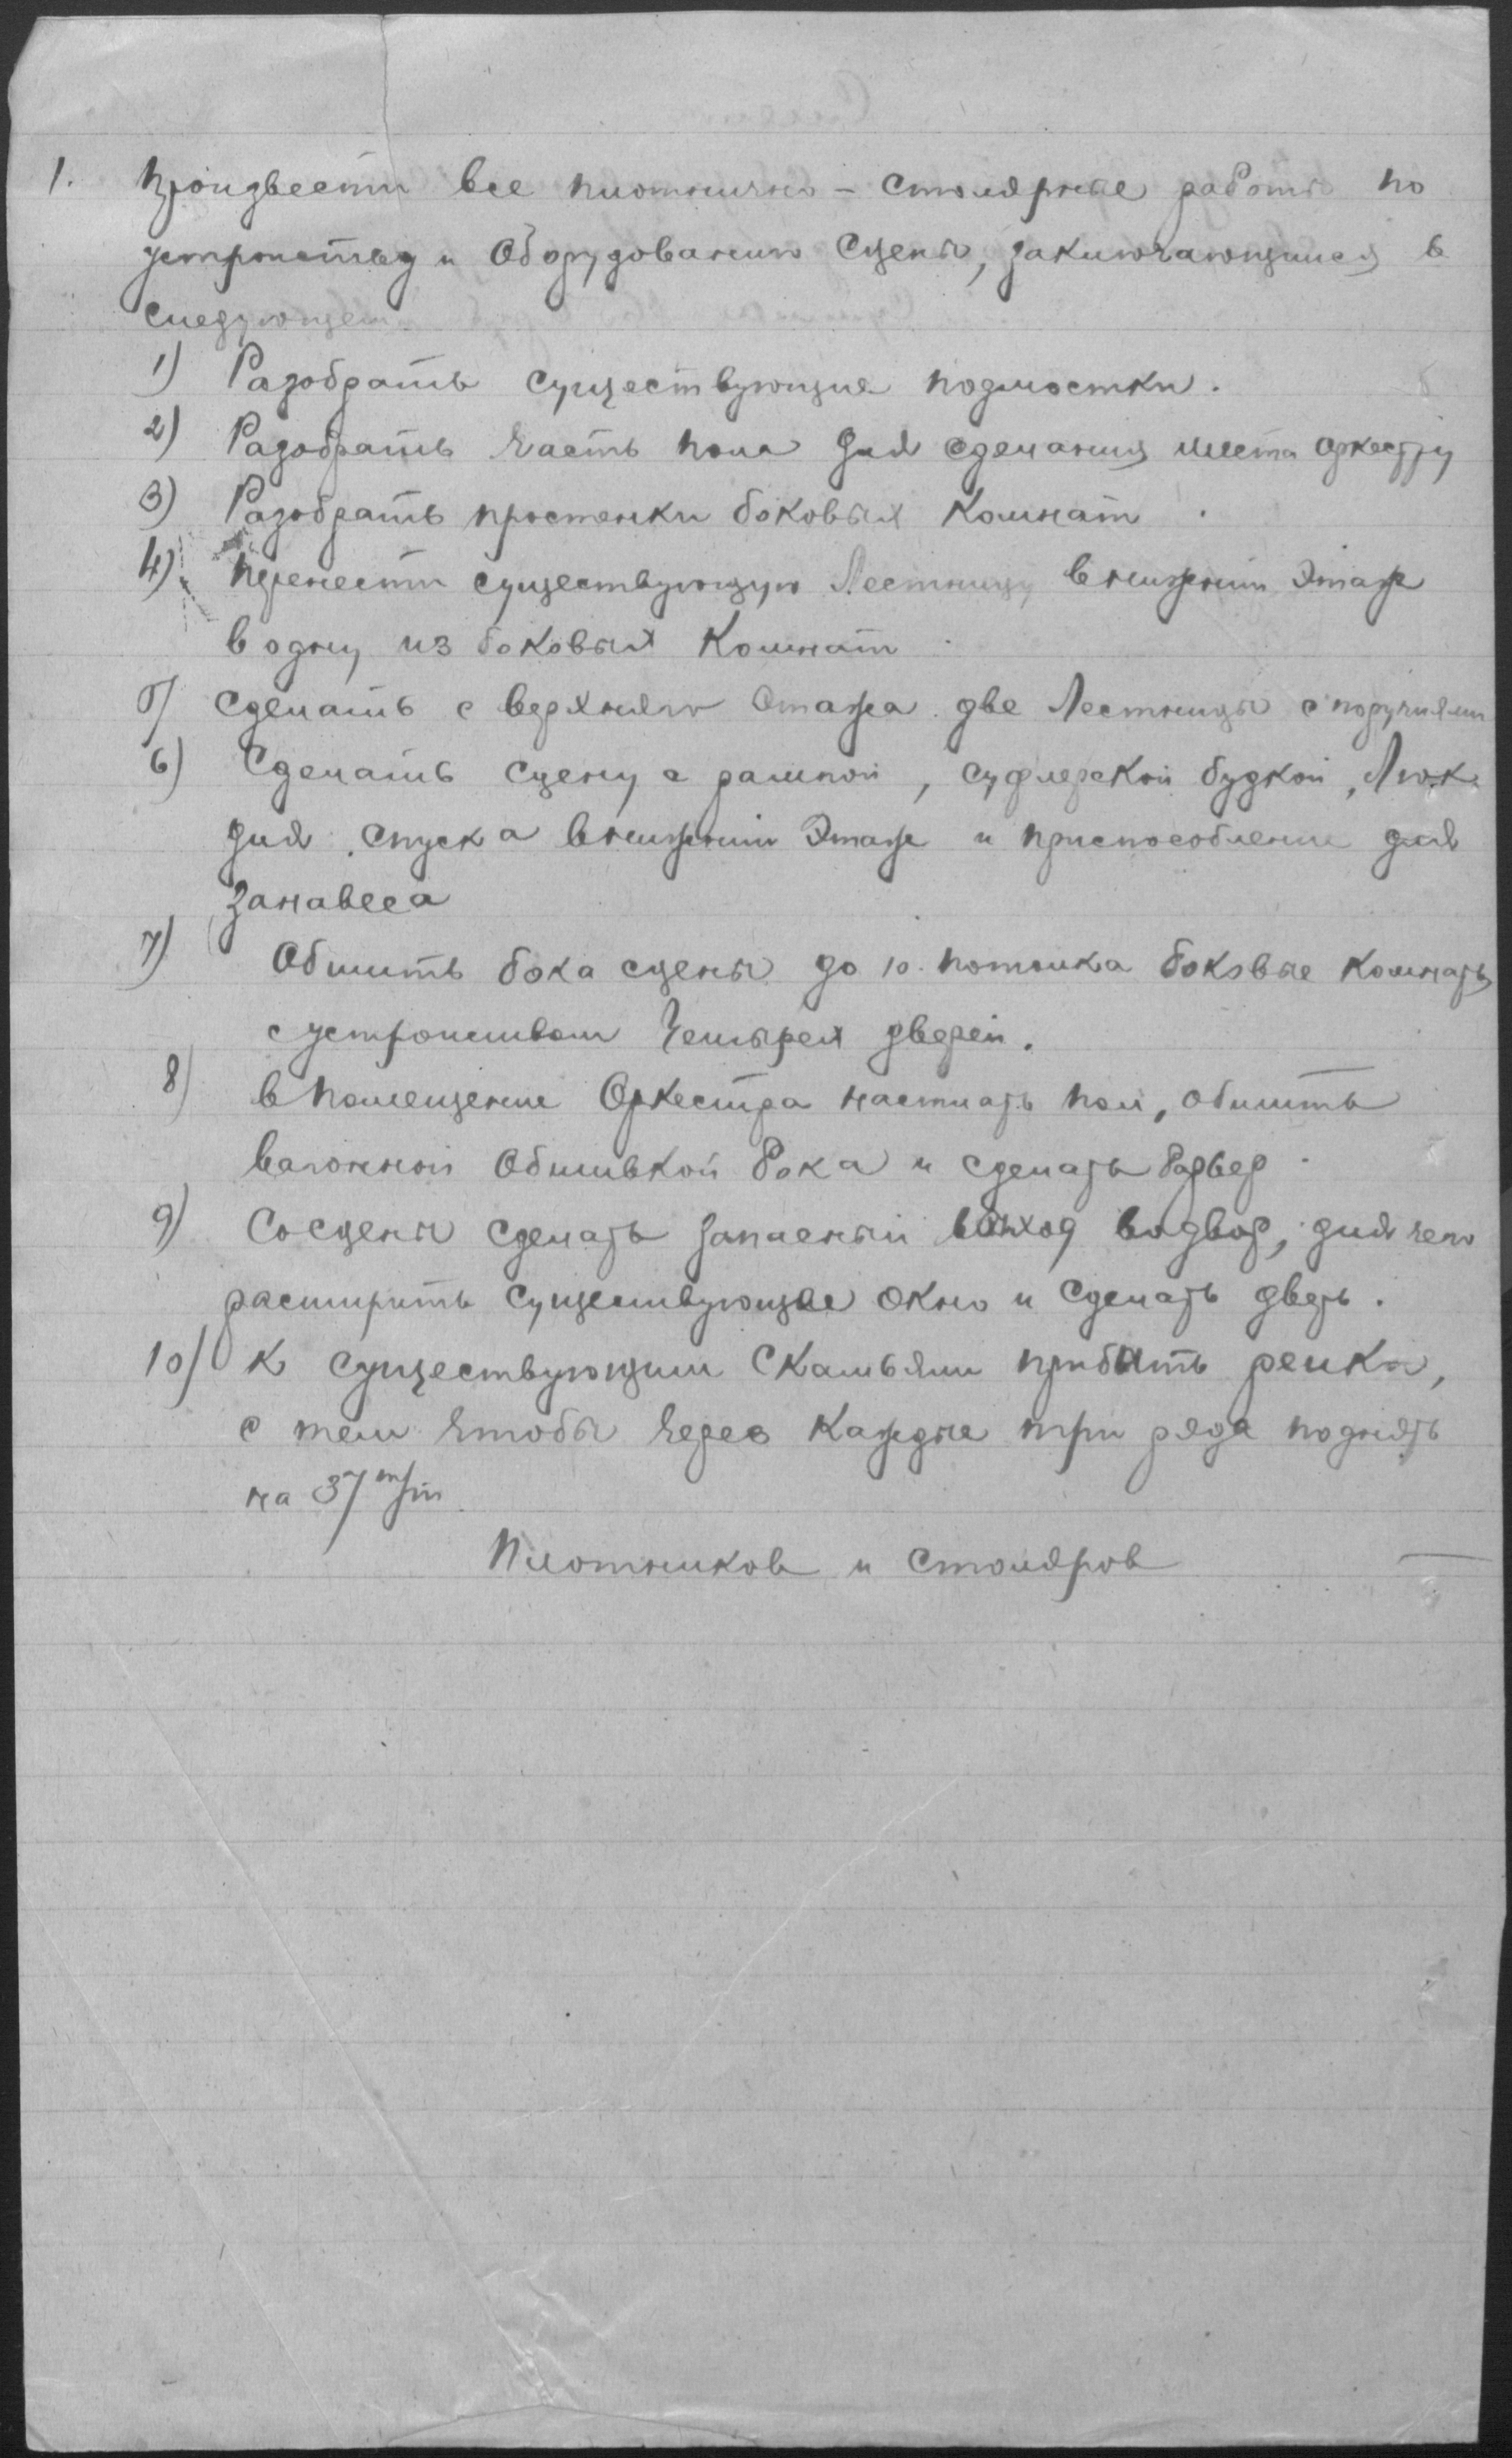 1. Произвести все плотнично - столярные работы по
устройству и Оборудованию Сцены, заключающиеся в
следующем
1) Разобрать существующие подмостки.
2) Разобрать часть пола для сделания места оркестру
3) Разобрать простенки боковых комнат.
4) Перенести существующую Лестницу в нижний Этаж
в одну из боковых комнат
5) Сделать с верхняго Этажа две Лестницы с поручнями
6) Сделать сцену с рампой, суфлерской будкой, Люк
для спуска в нижний Этаж и приспособление для
занавеса
7) Обшить бока сцены до потолка боковые комнаты
с устройством Четырех дверей.
8) в помещение Оркестра настлать пол, обшить
вагонной Обшивкой бока и сделать барьер
9) Со сцены сделать запасный выход во двор, для чего
расширить существующее окно и сделать дверь.
10) К существующим Скамьям прибить рейки,
с тем чтобы через каждые три ряда поднять
на 37 m/m
Плотников и столяров